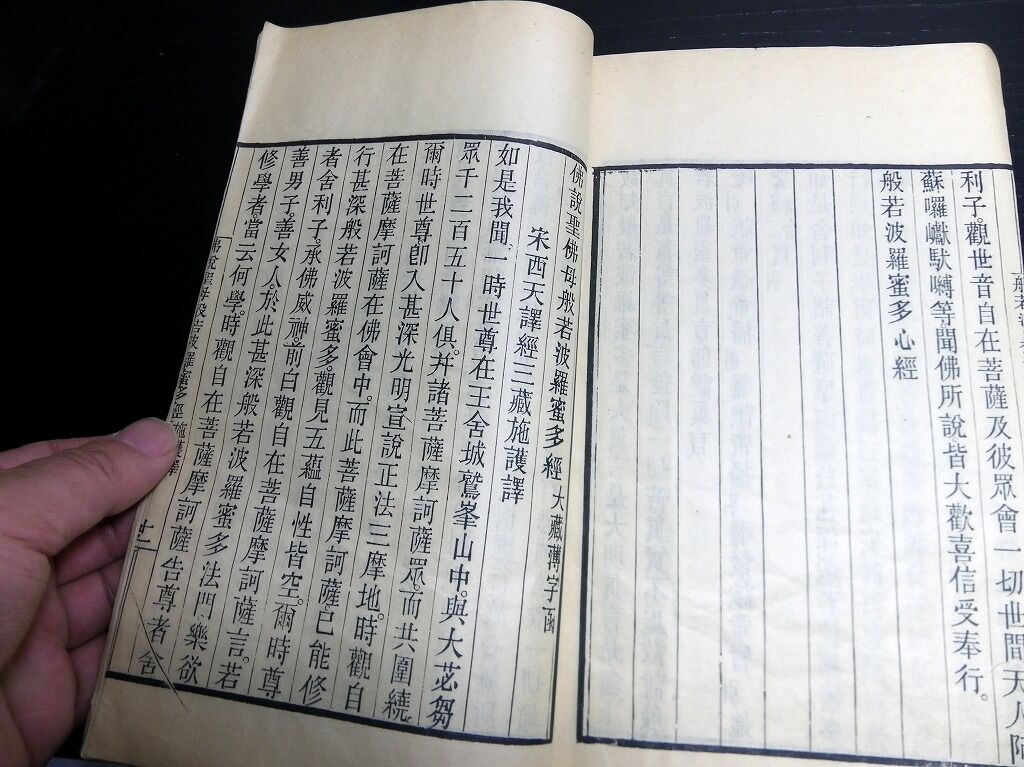 般若波
利子。觀世音自在菩薩及彼眾會一切世間天人阿
蘇囉巘馱嚩等聞佛所說皆大歡喜信受奉行。
般若波羅蜜多心經
佛說聖佛母般若波羅蜜多經 大藏薄字函
宋西天譯經三藏施護譯
如是我聞。一時世尊在王舍城鷲峯山中。與大苾芻
眾千二百五十人俱。幷諸菩薩摩訶薩眾。而共圍繞。
爾時世尊卽入甚深光明宣說正法三摩地。時觀自
在菩薩摩訶薩在佛會中。而此菩薩摩訶薩。已能修
行甚深般若波羅蜜多。觀見五蘊自性皆空。爾時尊
者舍利子。承佛威神。前白觀自在菩薩摩訶薩言。若
善男子。善女人。於此甚深般若波羅蜜多法門。樂欲
修學者當云何學。時觀自在菩薩摩訶薩告尊者舍
佛說聖母般若波羅蜜多經施護譯